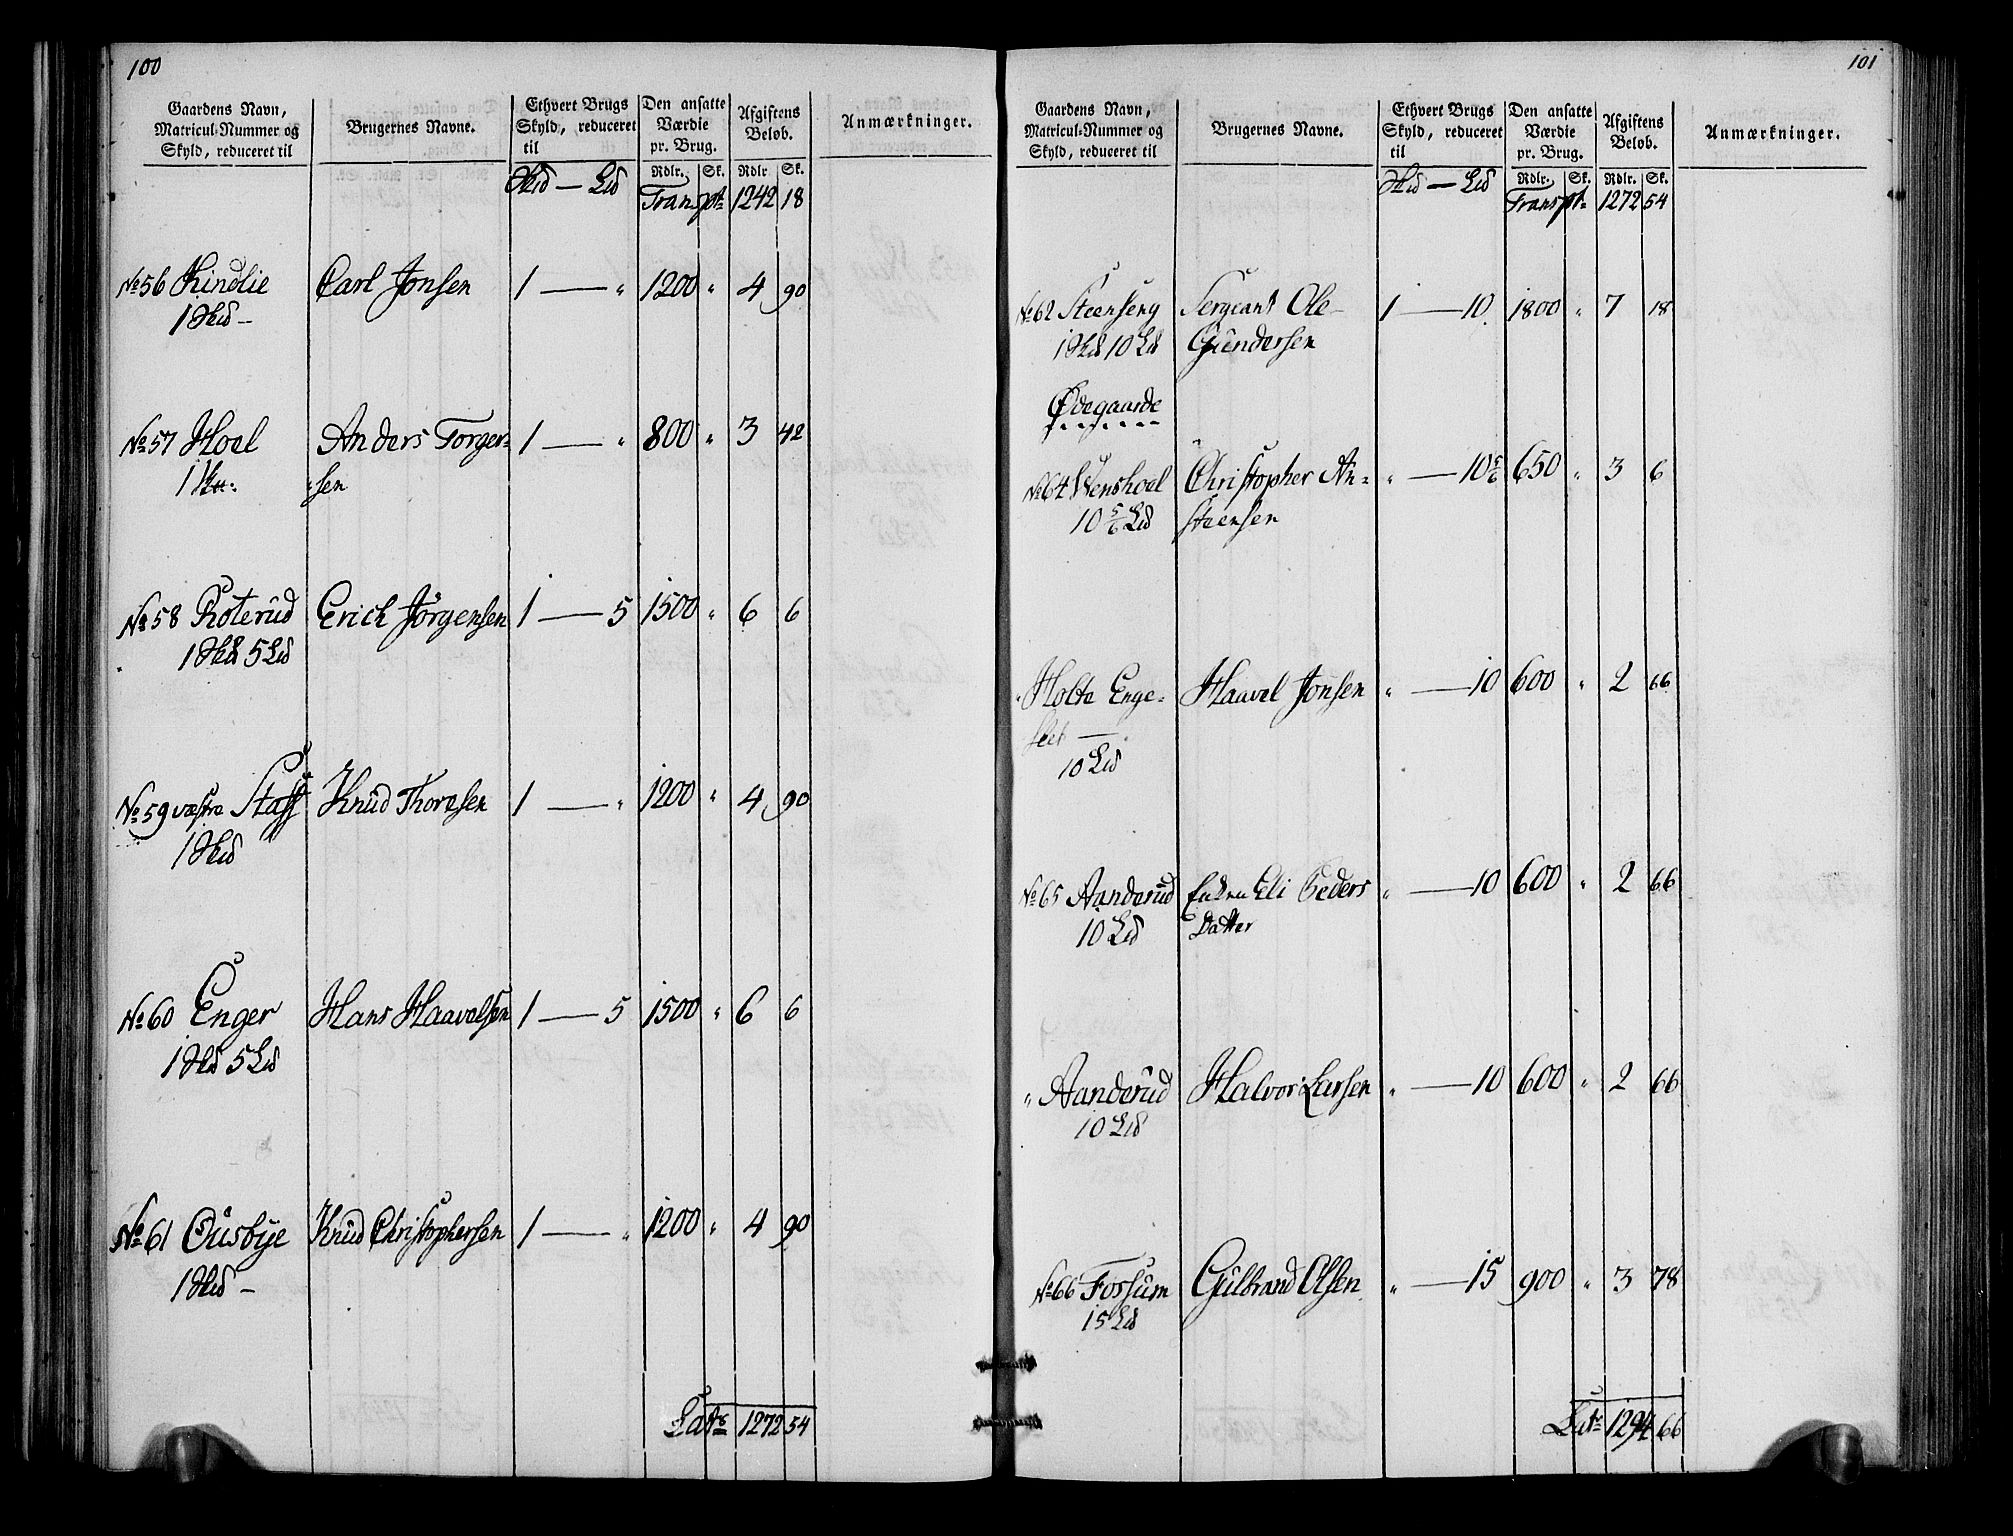 100
Gaardens Navn,
Matricul-Nummer og
Skyld, reduceret til
Brugernes Navne.
Ethvert Brugs
Skyld, reduceret
til
Den ansatte
Værdie
pr. Brug.
Afgiftens
Beløb.
Anmærkninger.
Rdlr. Sk. Rdlr Sk.
Hud — Ld Transpt 1242 18
No 56 Kindlie Carl Jonsen 1 — " 1200 " 4 90
1 Hud —
No 57 Hoel Anders Torger- 1 — " 800 " 3 42
1 sen
No 58 Roterud Erick Jörgensen 1 — 5 1500 " 6 6
1 Hud 5 Ld
No 59 væstre Staff Knud Thoresen 1 — " 1200 " 4 90
1 Hud
No 60 Enger Hans Haavelsen 1 — 5 1500 " 6 6
1 Hud 5 Ld
No 61 Ousbye Knud Christophersen 1 — " 1200 " 4 90
1 Hud —
Latr 1272 54
101
Gaardens Navn,
Matricul-Nummer og
Skyld, reduceret til
Brugernes Navne.
Ethvert Brugs
Skyld, reduceret
til
Den ansatte
Værdie
pr. Brug.
Afgiftens
Beløb.
Anmærkninger.
Rdlr. Sk. Rdlr. Sk.
Hud — Ld Transpt 1272 54
No 62 Steenseng Sergeant Ole 1 — 10 1800 " 7 18
1 Hud 10 Ld Gundersen
Ødegaarde
No 64 Wenshoel Christopher An- " — 10 5/6 650 " 3 6
10 5/6 Ld steensen
" Holte Enge- Haavel Jonsen " — 10 600 " 2 66
set —
10 Ld
No 65 Aanderud Enken Eli Peders " — 10 600 " 2 66
10 Ld Datter
" Aanderud Halvor Larsen " — 10 600 " 2 66
10 Ld
No 66 Fossum Gulbrand Olsen " — 15 900 " 3 78
15 Ld
Latr 1294 66